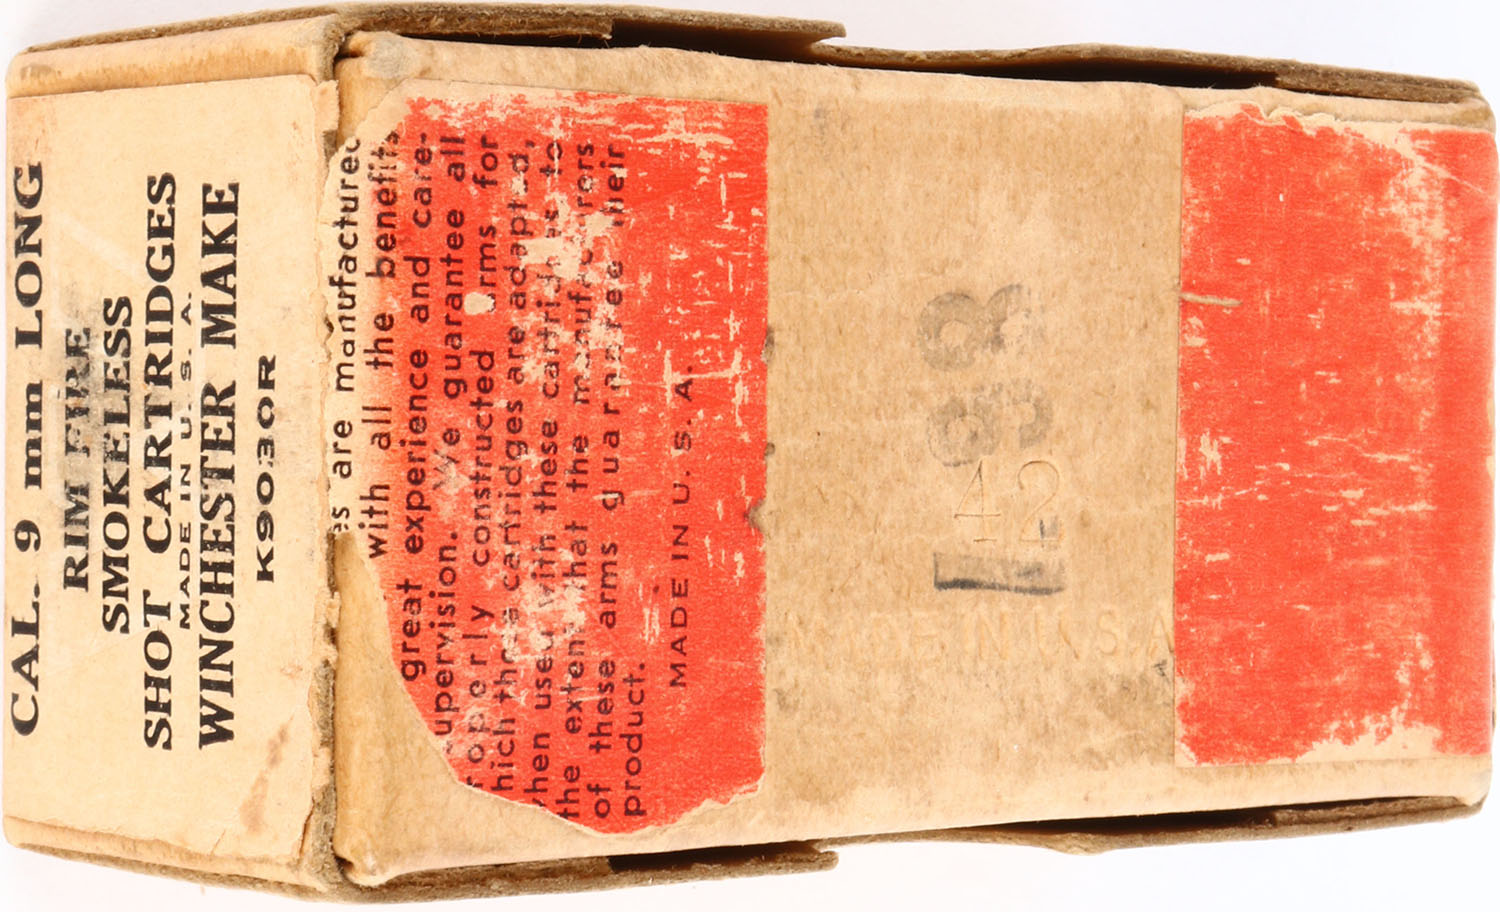 CAL. 9 mm LONG
RIM FIRE
SMOKELESS
SHOT CARTRIDGES
MADE IN U. S. A.
WINCHESTER MAKE
K9030R
es are manufactured
with all the benefits
great experience and care-
upervision. We guarantee all
roperly constructed arms for
hich these cartridges are adapted,
when used with these cartridges to
the extent that the manufacturors
of these arms guarantee their
product.
MADE IN U. S. A.
42
IN U.S.A